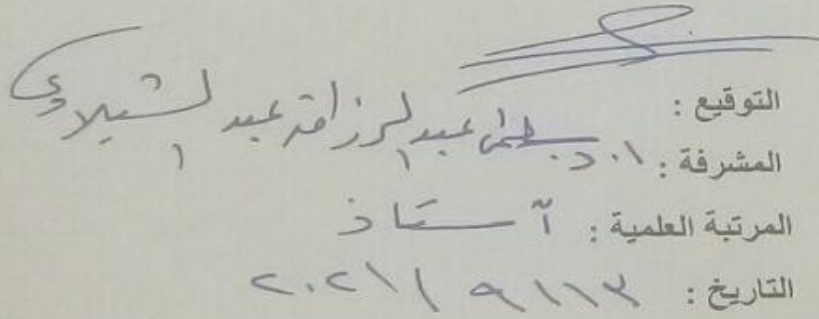 التوقيع :
المشرفة : ا. د. سلمى عبد الرزاق عبد الشبلاوي
المرتبة العلمية : آستاذ
التاريخ : ٢٠٢١ / ٩ / ١٣